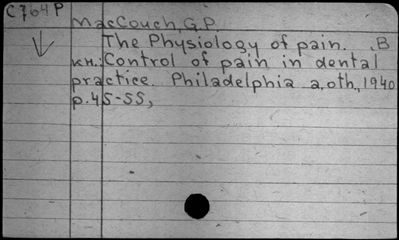 C764P
MacCouch, G.P.
The Physiology of pain. В
кн.: Control of pain in dental
practice. Philadelphia a.oth., 1940
p. 45-55,